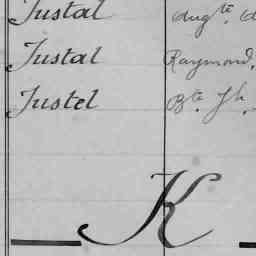 Justal Augte. d
Justal Raymond.
Justel Bte. Jh.
K